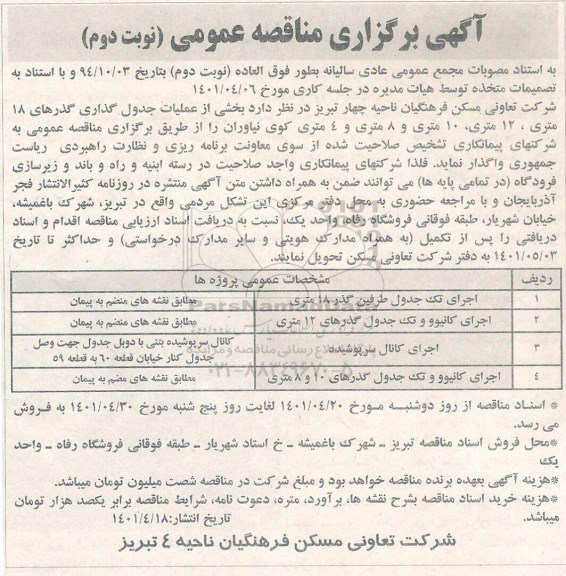 آگهی برگزاری مناقصه عمومی (نوبت دوم)
به استناد مصوبات مجمع عمومی عادی سالیانه بطور فوق العاده (نوبت دوم) بتاریخ ۹۴/۱۰/۰۳ و با استناد به
تصمیمات متخذه توسط هیات مدیره در جلسه کاری مورخ ۱۴۰۱/۰۴/۰۶
شرکت تعاونی مسکن فرهنگیان ناحیه چهار تبریز در نظر دارد بخشی از عملیات جدول گذاری گذرهای ۱۸
متری ، ۱۲ متری، ۱۰ متری و ۸ متری و ۴ متری کوی نیاوران را از طریق برگزاری مناقصه عمومی به
شرکتهای پیمانکاری تشخیص صلاحیت شده از سوی معاونت برنامه ریزی و نظارت راهبردی ریاست
جمهوری واگذار نماید. فلذا شرکتهای پیمانکاری واجد صلاحیت در رسته ابنیه و راه و باند و زیرسازی
فرودگاه (در تمامی پایه ها) می توانند ضمن به همراه داشتن متن آگهی منتشره در روزنامه کثیرالانتشار فجر
آذربایجان و با مراجعه حضوری به محل دفتر مرکزی این تشکل مردمی واقع در تبریز، شهرک باغمیشه،
خیابان شهریار، طبقه فوقانی فروشگاه رفاه واحد یک، نسبت به دریافت اسناد ارزیابی مناقصه اقدام و اسناد
دریافتی را پس از تکمیل (به همراه مدارک هویتی و سایر مدارک درخواستی) و حداکثر تا تاریخ
۱۴۰۱/۰۵/۰۳ به دفتر شرکت تعاونی مسکن تحویل نمایند.
ردیف مشخصات عمومی پروژه ها
۱ اجرای تک جدول طرفین گذر ۱۸ متری مطابق نقشه های منضم به پیمان
۲ اجرای کانیوو و تک جدول گذرهای ۱۲ متری مطابق نقشه های منضم به پیمان
۳ اجرای کانال سرپوشیده کانال سرپوشیده بتنی با دوبل جدول جهت وصل
جدول کنار خیابان قطعه ۶۰ به قطعه ۵۹
۴ اجرای کانیوو و تک جدول گذرهای ۱۰ و ۸ متری مطابق نقشه های منضم به پیمان
ParsNamadData
۰۲۱-۸۸۳۴۹۶۷۰-۵
* اسناد مناقصه از روز دوشنبه مورخ ۱۴۰۱/۰۴/۲۰ لغایت روز پنج شنبه مورخ ۱۴۰۱/۰۴/۳۰ به فروش
می رسد.
*محل فروش اسناد مناقصه تبریز ـ شهرک باغمیشه ـ خ استاد شهریار ـ طبقه فوقانی فروشگاه رفاه ـ واحد
یک
*هزینه آگهی بعهده برنده مناقصه خواهد بود و مبلغ شرکت در مناقصه شصت میلیون تومان میباشد.
*هزینه خرید اسناد مناقصه بشرح نقشه ها، برآورد، متره، دعوت نامه، شرایط مناقصه برابر یکصد هزار تومان
میباشد. تاریخ انتشار: ۱۴۰۱/۴/۱۸
شرکت تعاونی مسکن فرهنگیان ناحیه ۴ تبریز